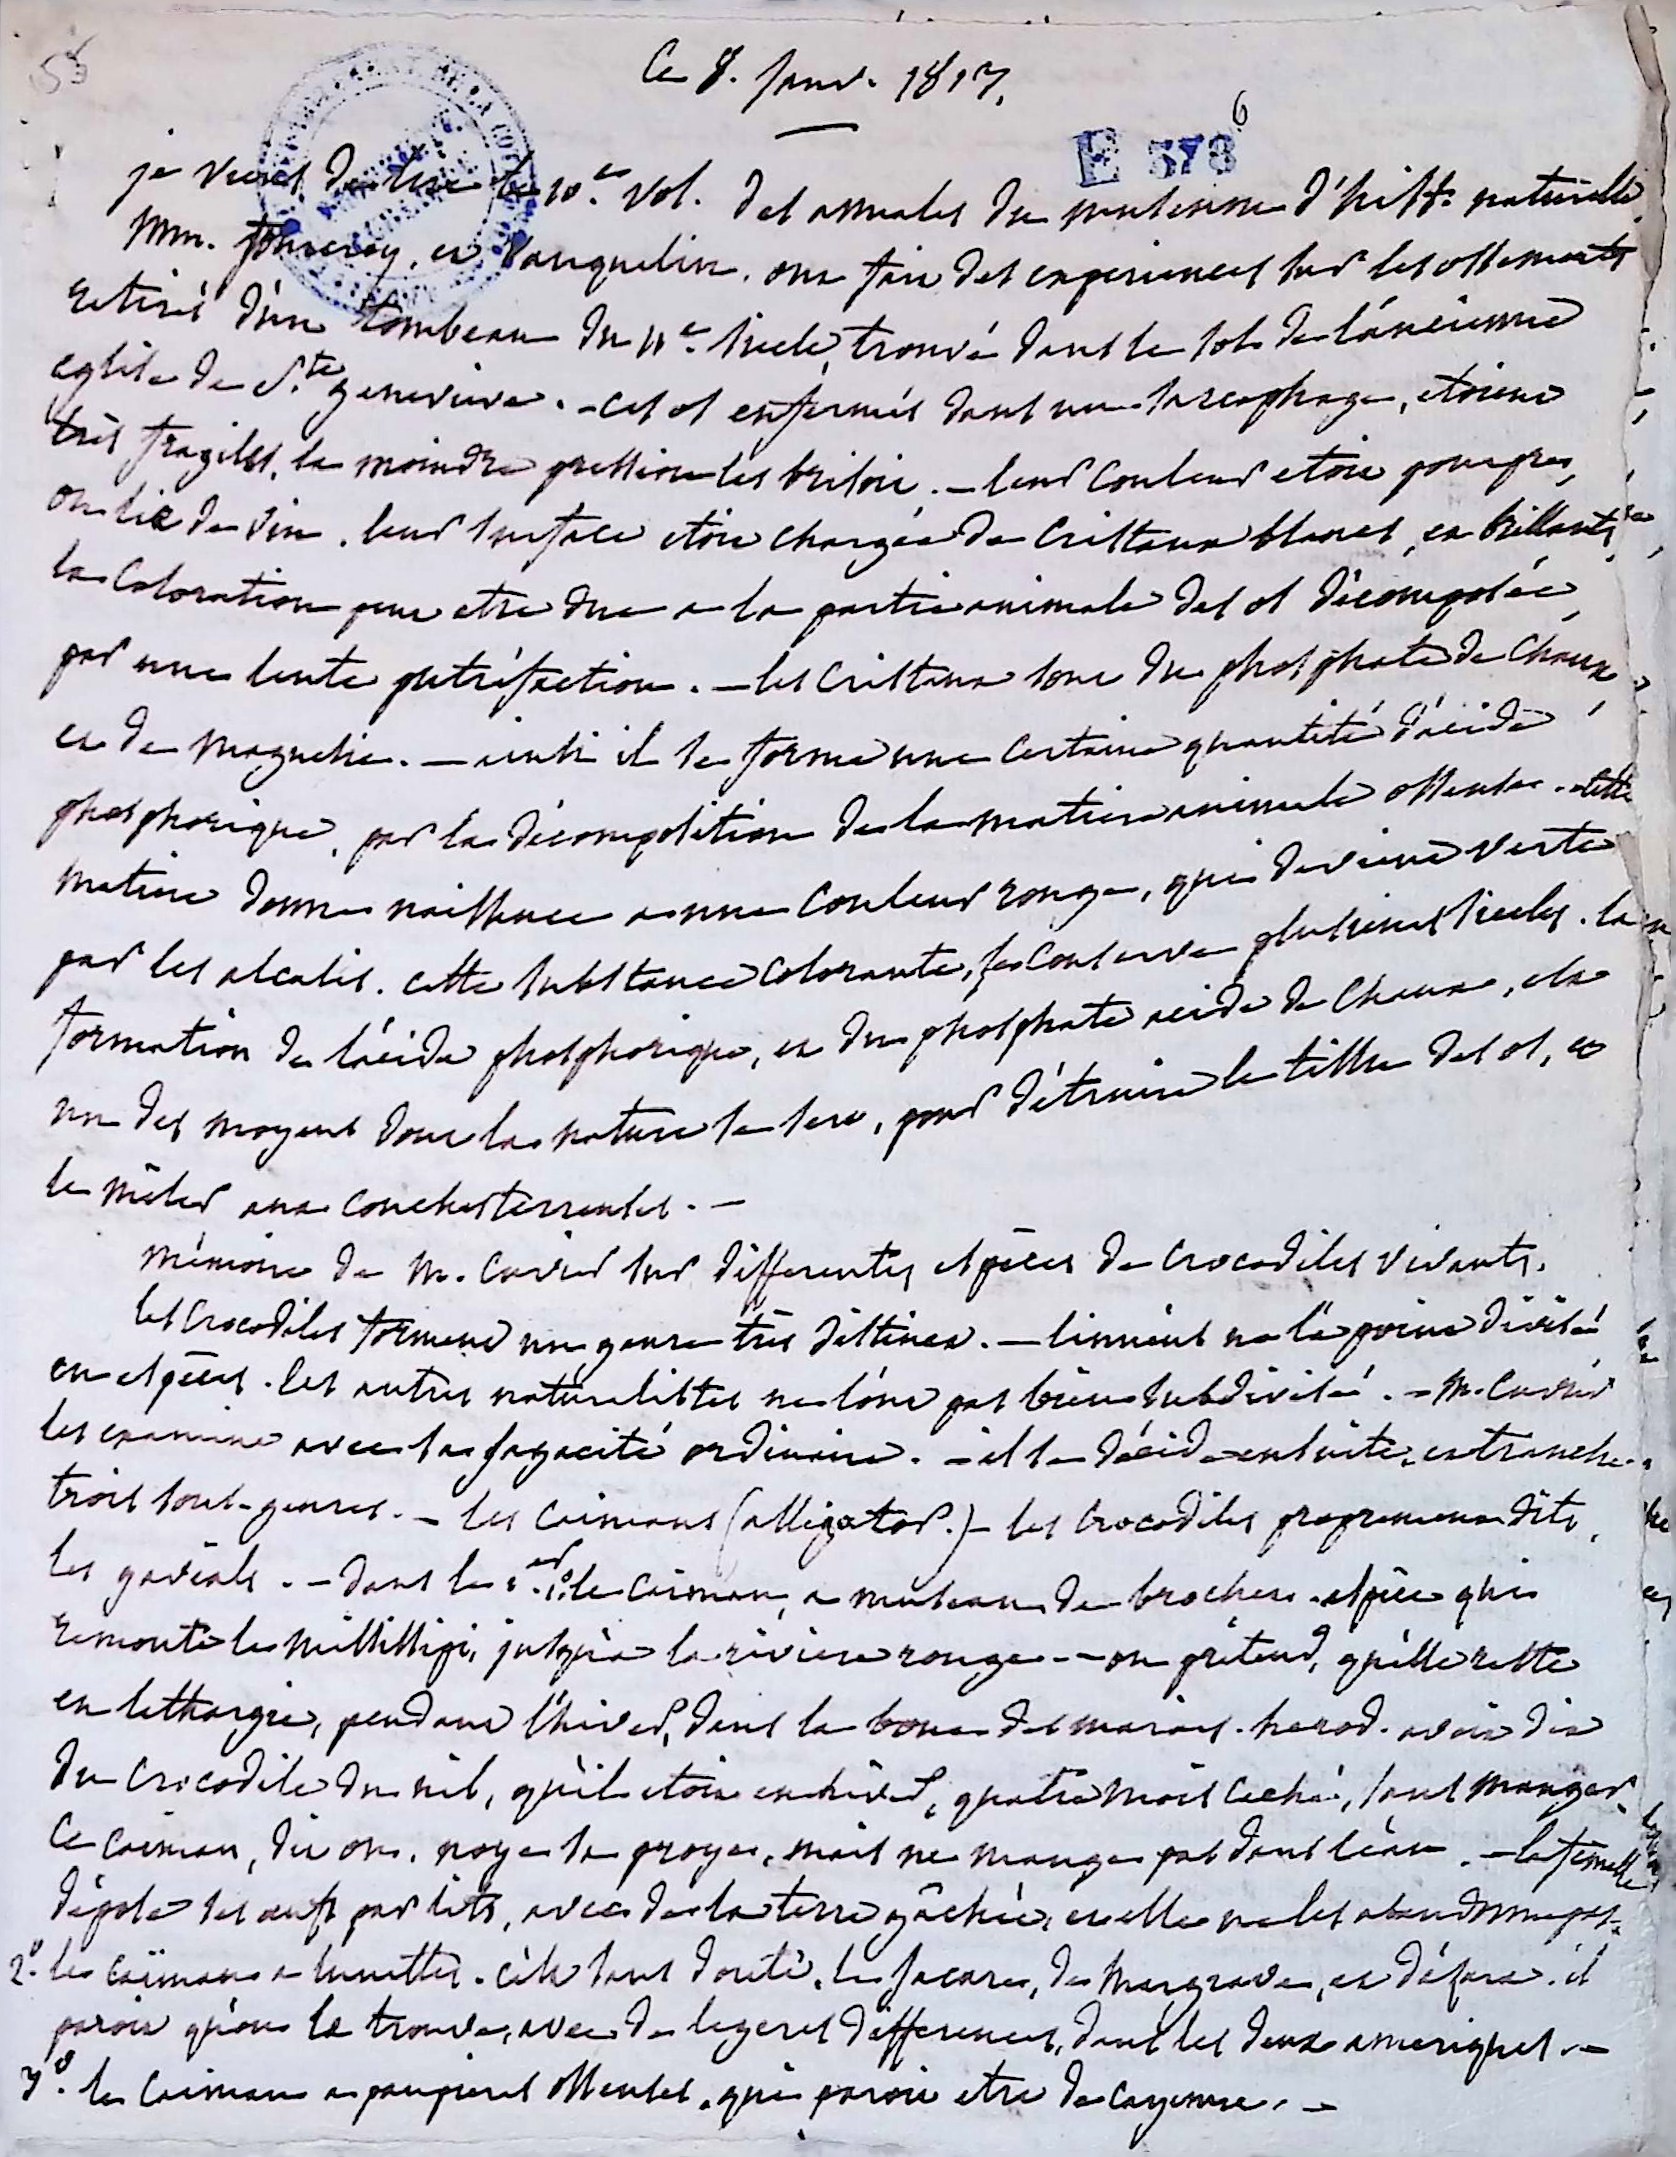 Ce 8. Janv. 1817.
6
E 578
je viens de lire le 10.e vol. des annales du museum d'hist. naturelle
Mm. fourcroy, et Vauquelin, ont fait des experiences sur les ossements
retirés d'un tombeau du 11.e siecle, trouvé dans le sol de l'ancienne
eglise de S.te genevieve. - ces os enfermés dans un sarcophage, etoient
très fragiles, la moindre pression les brisoit. - leur couleur etoit pourpre,
ou lie de vin. leur surface etoit chargée de cristaux blancs, et brillants,
la coloration peut etre due a la partie animale des os décomposée
par une lente putréfaction. - les cristaux sont du phosphate de chaux
et de magnesie. - ainsi il se forme une certaine quantité d'acide
phosphorique, par la décomposition de la matiere animale osseuse. cette
matiere donne naissance a une couleur rouge, qui devient verte
par les alcalis. cette substance colorante, se conserve plusieurs siecles. la
formation de l'acide phosphorique, et du phosphate acide de chaux, est
un des moyens dont la nature se sert, pour détruire le tissu des os, et
le mêler aux couches terreuses. -
mémoire de M. Cuvier sur differentes espèces de crocodiles vivants.
les crocodiles forment un genre très distinct. - linnéus ne l'a point divisé
en espèces. les autres naturalistes ne l'ont pas bien subdivisé. - M. Cuvier
les examine avec sa sagacité ordinaire. - il se décide ensuite, et tranche
trois sous-genres. - les caimans (alligator.) - les crocodiles proprement dits,
les gavials. - dans le 1.er 1.° le caiman, a museau de brochet. espèce qui
remonte le mississipi, jusqu'a la riviere rouge - - on prétend, qu'elle reste
en lethargie, pendant l'hiver, dans la boue des marais. herod. avoit dit
du crocodile du nil, qu'il etoit en hiver, quatre mois caché, sans manger.
Ce caiman, dit on, noye sa proye, mais ne mange pas dans l'eau. - la femelle
dépose ses oeufs par lits, avec de la terre gâchée, et elle ne les abandonne pas.
2.° le caïman a lunettes. c'est sans doute, le jacare, de Margrave, et d'azara. il
paroit qu'on le trouve, avec de legeres differences, dans les deux ameriques. -
3.° le caiman a paupieres osseuses, qui paroit etre de cayenne. -